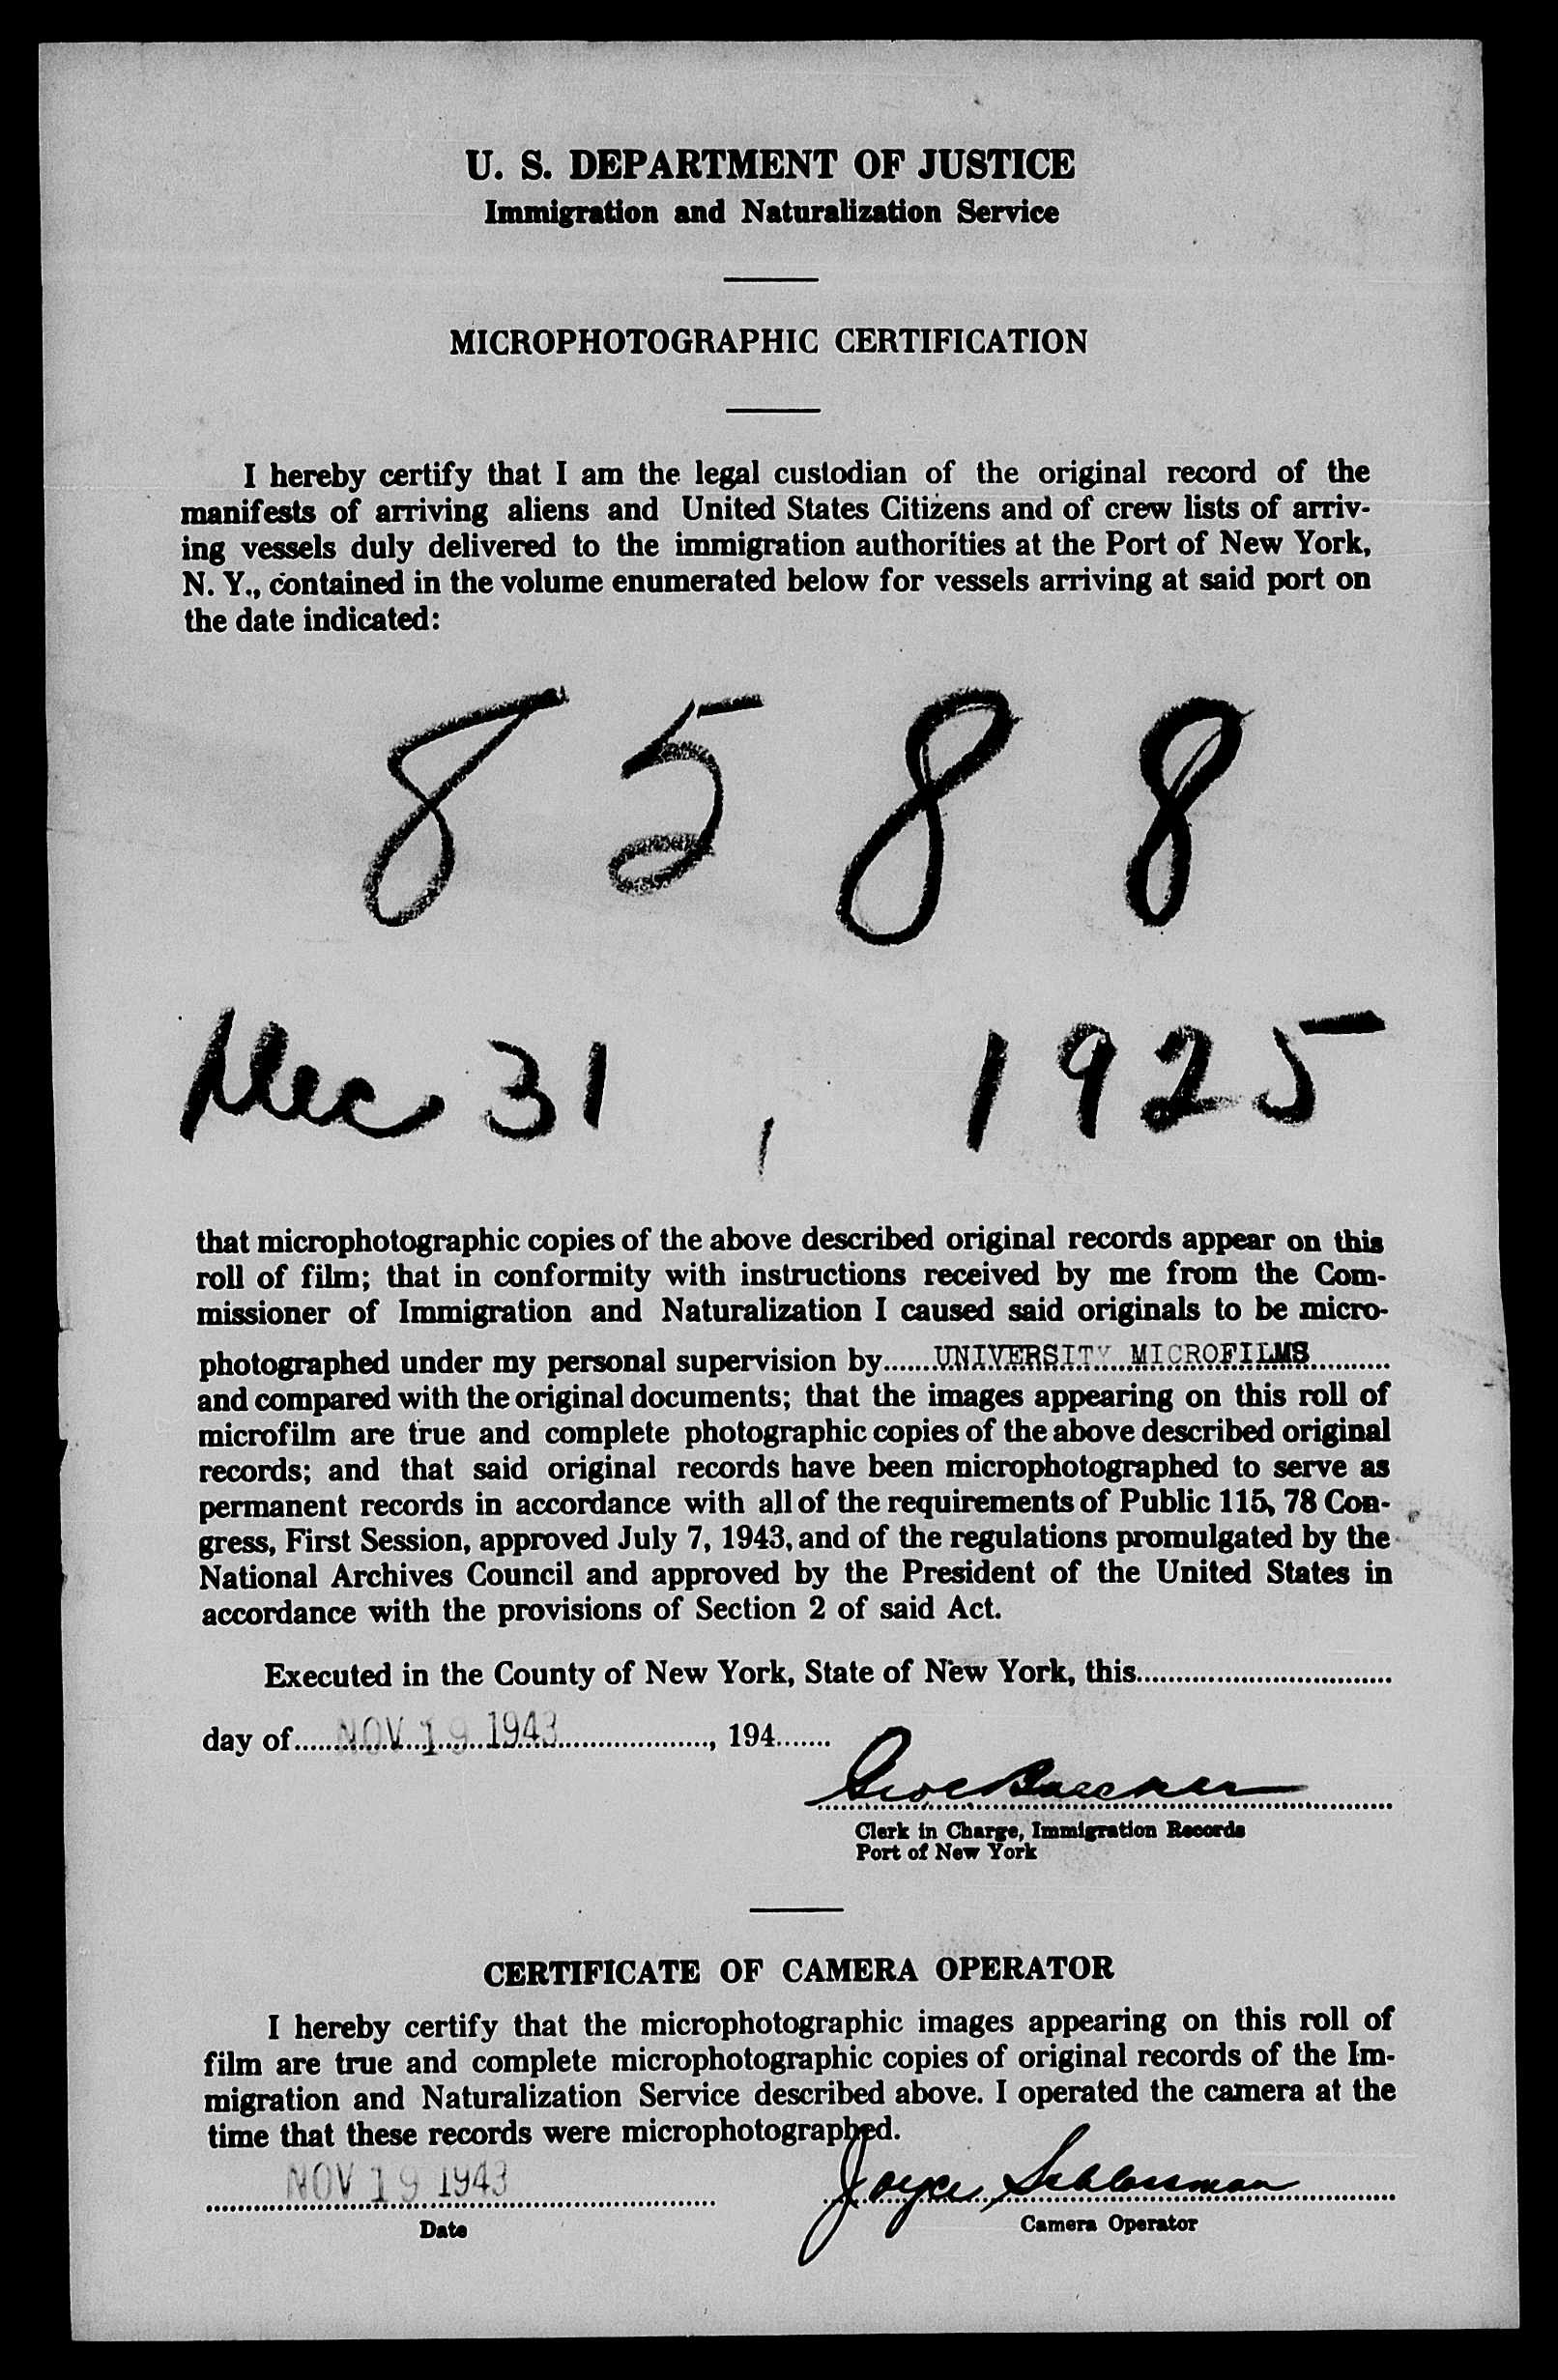 U. S. DEPARTMENT OF JUSTICE
Immigration and Naturalization Service
MICROPHOTOGRAPHIC CERTIFICATION
I hereby certify that I am the legal custodian of the original record of the
manifests of arriving aliens and United States Citizens and of crew lists of arriv-
ing vessels duly delivered to the immigration authorities at the Port of New York,
N. Y., contained in the volume enumerated below for vessels arriving at said port on
the date indicated:
8588
Dec 31, 1925
that microphotographic copies of the above described original records appear on this
roll of film; that in conformity with instructions received by me from the Com-
missioner of Immigration and Naturalization I caused said originals to be micro-
photographed under my personal supervision by......UNIVERSITY MICROFILMS..........
and compared with the original documents; that the images appearing on this roll of
microfilm are true and complete photographic copies of the above described original
records; and that said original records have been microphotographed to serve as
permanent records in accordance with all of the requirements of Public 115, 78 Con-
gress, First Session, approved July 7, 1943, and of the regulations promulgated by the
National Archives Council and approved by the President of the United States in
accordance with the provisions of Section 2 of said Act.
Executed in the County of New York, State of New York, this................................
day of.....NOV 19 1943..................., 194.......
Clerk in Charge, Immigration Records
Port of New York
CERTIFICATE OF CAMERA OPERATOR
I hereby certify that the microphotographic images appearing on this roll of
film are true and complete microphotographic copies of original records of the Im-
migration and Naturalization Service described above. I operated the camera at the
time that these records were microphotographed.
NOV 19 1943 Joyce
Date Camera Operator